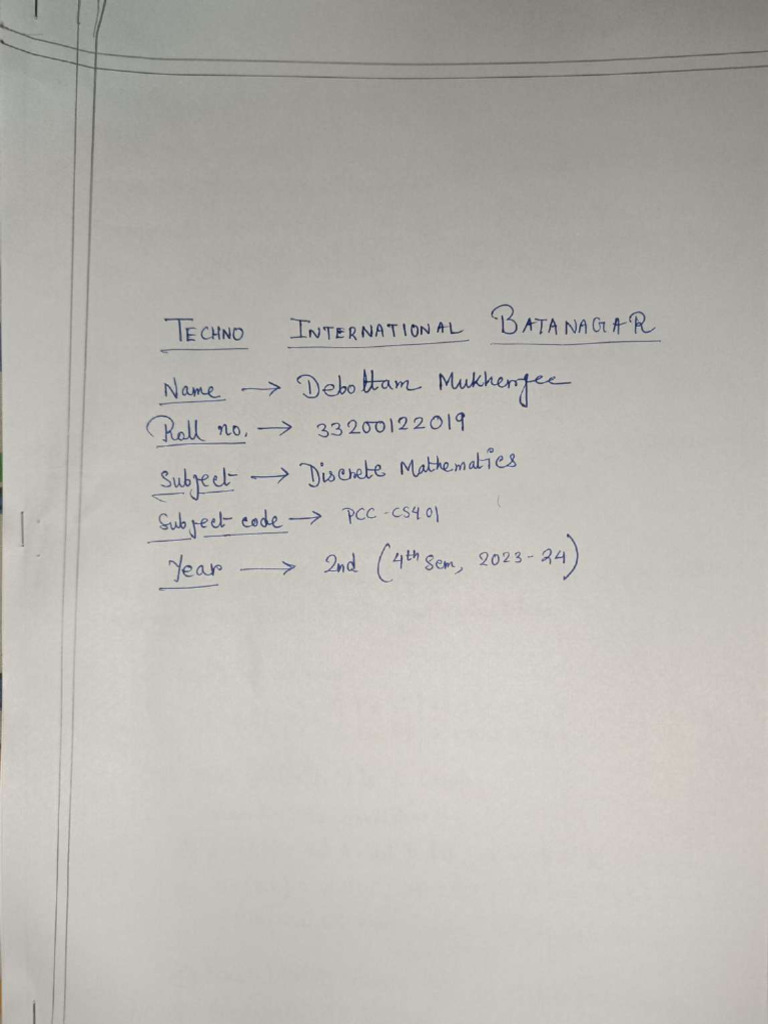 TECHNO INTERNATIONAL BATANAGAR
Name → Debottam Mukherjee
Roll no. → 33200122019
Subject → Discrete Mathematics
Subject code → PCC-CS401
Year → 2nd (4th Sem, 2023-24)